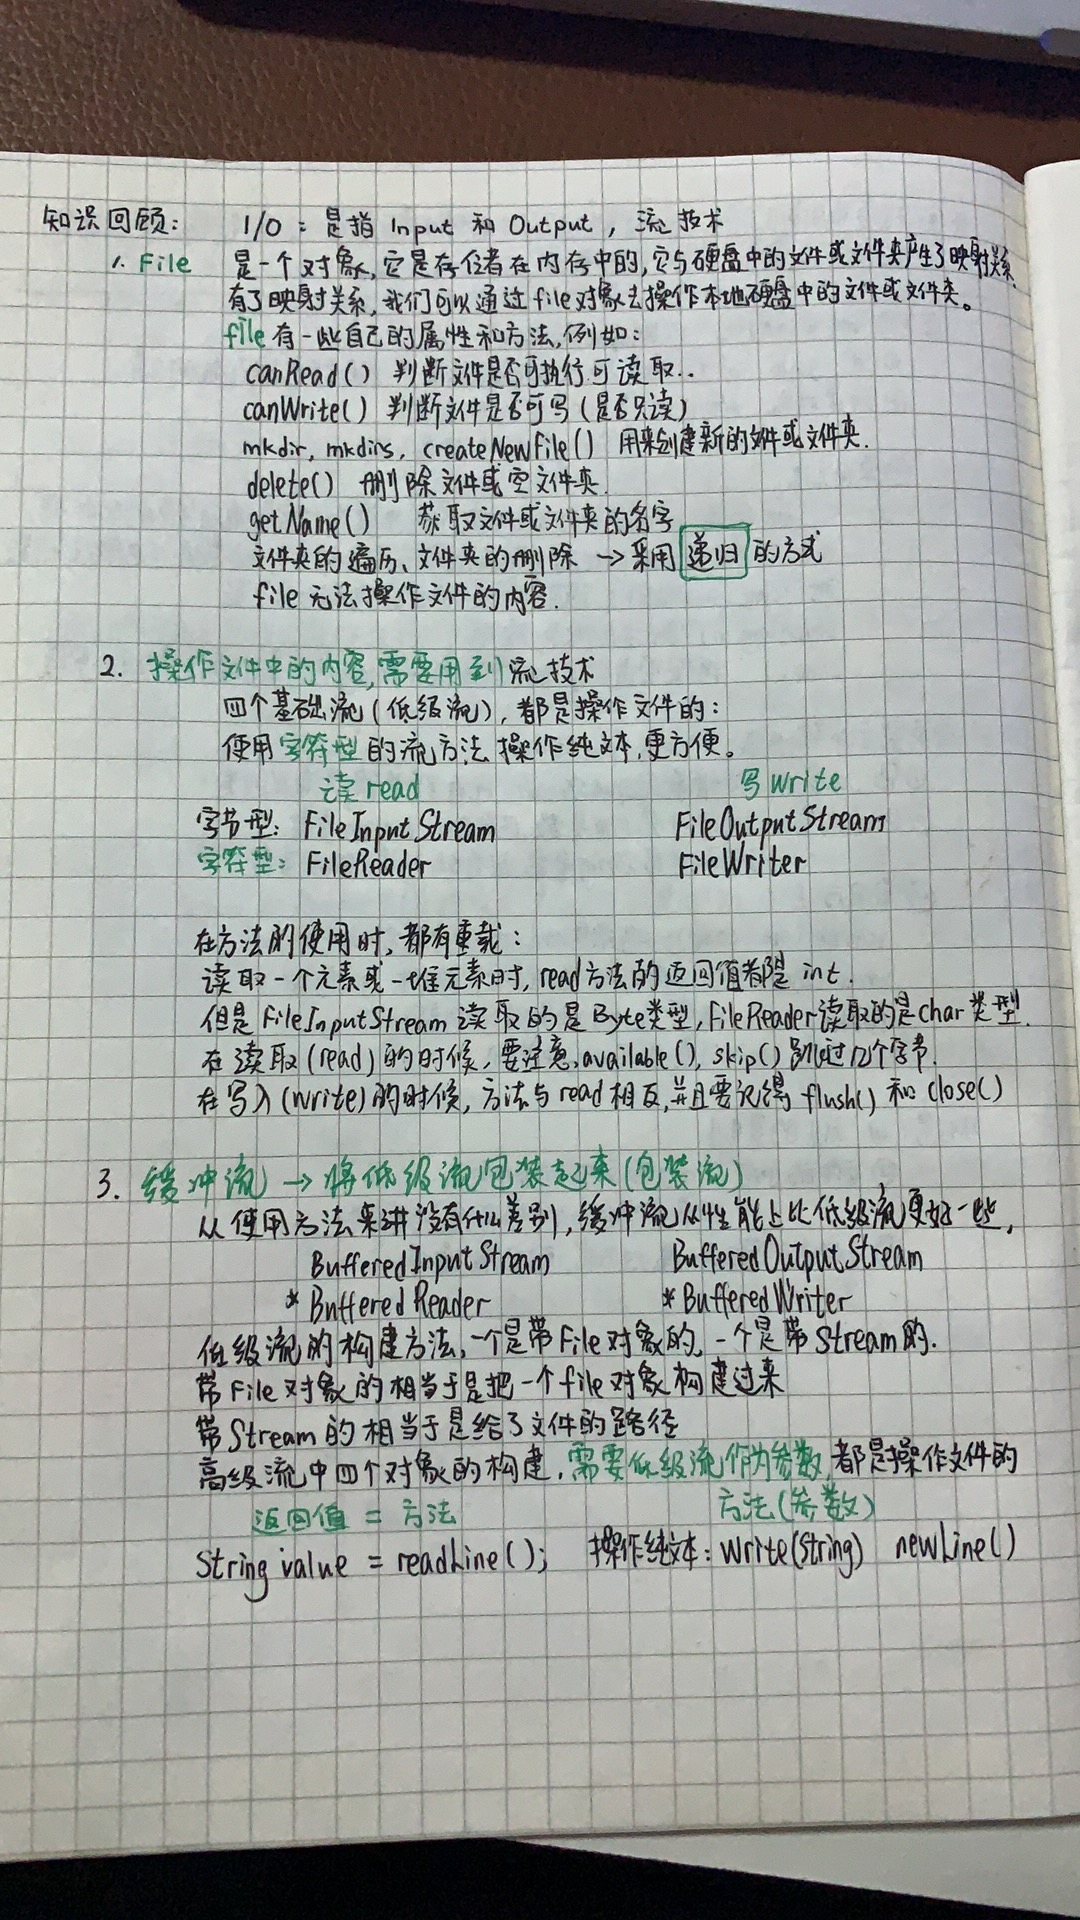 知识回顾: I/O：是指 Input 和 Output，流技术
1. File 是一个对象，它是存在内存中的，它与硬盘中的文件或文件夹产生了映射关系
有了映射关系，我们可以通过file对象去操作本地硬盘中的文件或文件夹。
file有一些自己的属性和方法，例如：
canRead() 判断文件是否可执行可读取..
canWrite() 判断文件是否可写(是否只读)
mkdir, mkdirs, createNewFile() 用来创建新的文件或文件夹.
delete() 删除文件或空文件夹.
getName() 获取文件或文件夹的名字
文件夹的遍历、文件夹的删除 → 采用 递归 的方式
file 无法操作文件的内容.
2. 操作文件中的内容, 需要用到流技术
四个基础流(低级流), 都是操作文件的：
使用字符型的流方法 操作纯文本,更方便。
读read 写write
字节型: FileInputStream FileOutputStream
字符型: FileReader FileWriter
在方法的使用时, 都有重载：
读取一个元素或一堆元素时, read方法的返回值都是 int.
但是 FileInputStream 读取的是Byte类型, FileReader读取的是char类型.
在读取(read)的时候, 要注意,available(), skip() 跳过几个字节.
在写入(write)的时候, 方法与read相反,并且要记得 flush() 和 close()
3. 缓冲流 → 将低级流包装起来(包装流)
从使用方法来讲没有什么差别, 缓冲流从性能上比低级流更好一些,
BufferedInputStream BufferedOutputStream
*BufferedReader *BufferedWriter
低级流的构建方法,一个是带File对象的, 一个是带Stream的.
带File对象的相当于是把一个file对象构建过来
带Stream的相当于是给了文件的路径
高级流中四个对象的构建, 需要低级流作为参数,都是操作文件的
返回值 = 方法 方法(参数)
String value = readLine(); 操作纯文本: write(String) newLine()